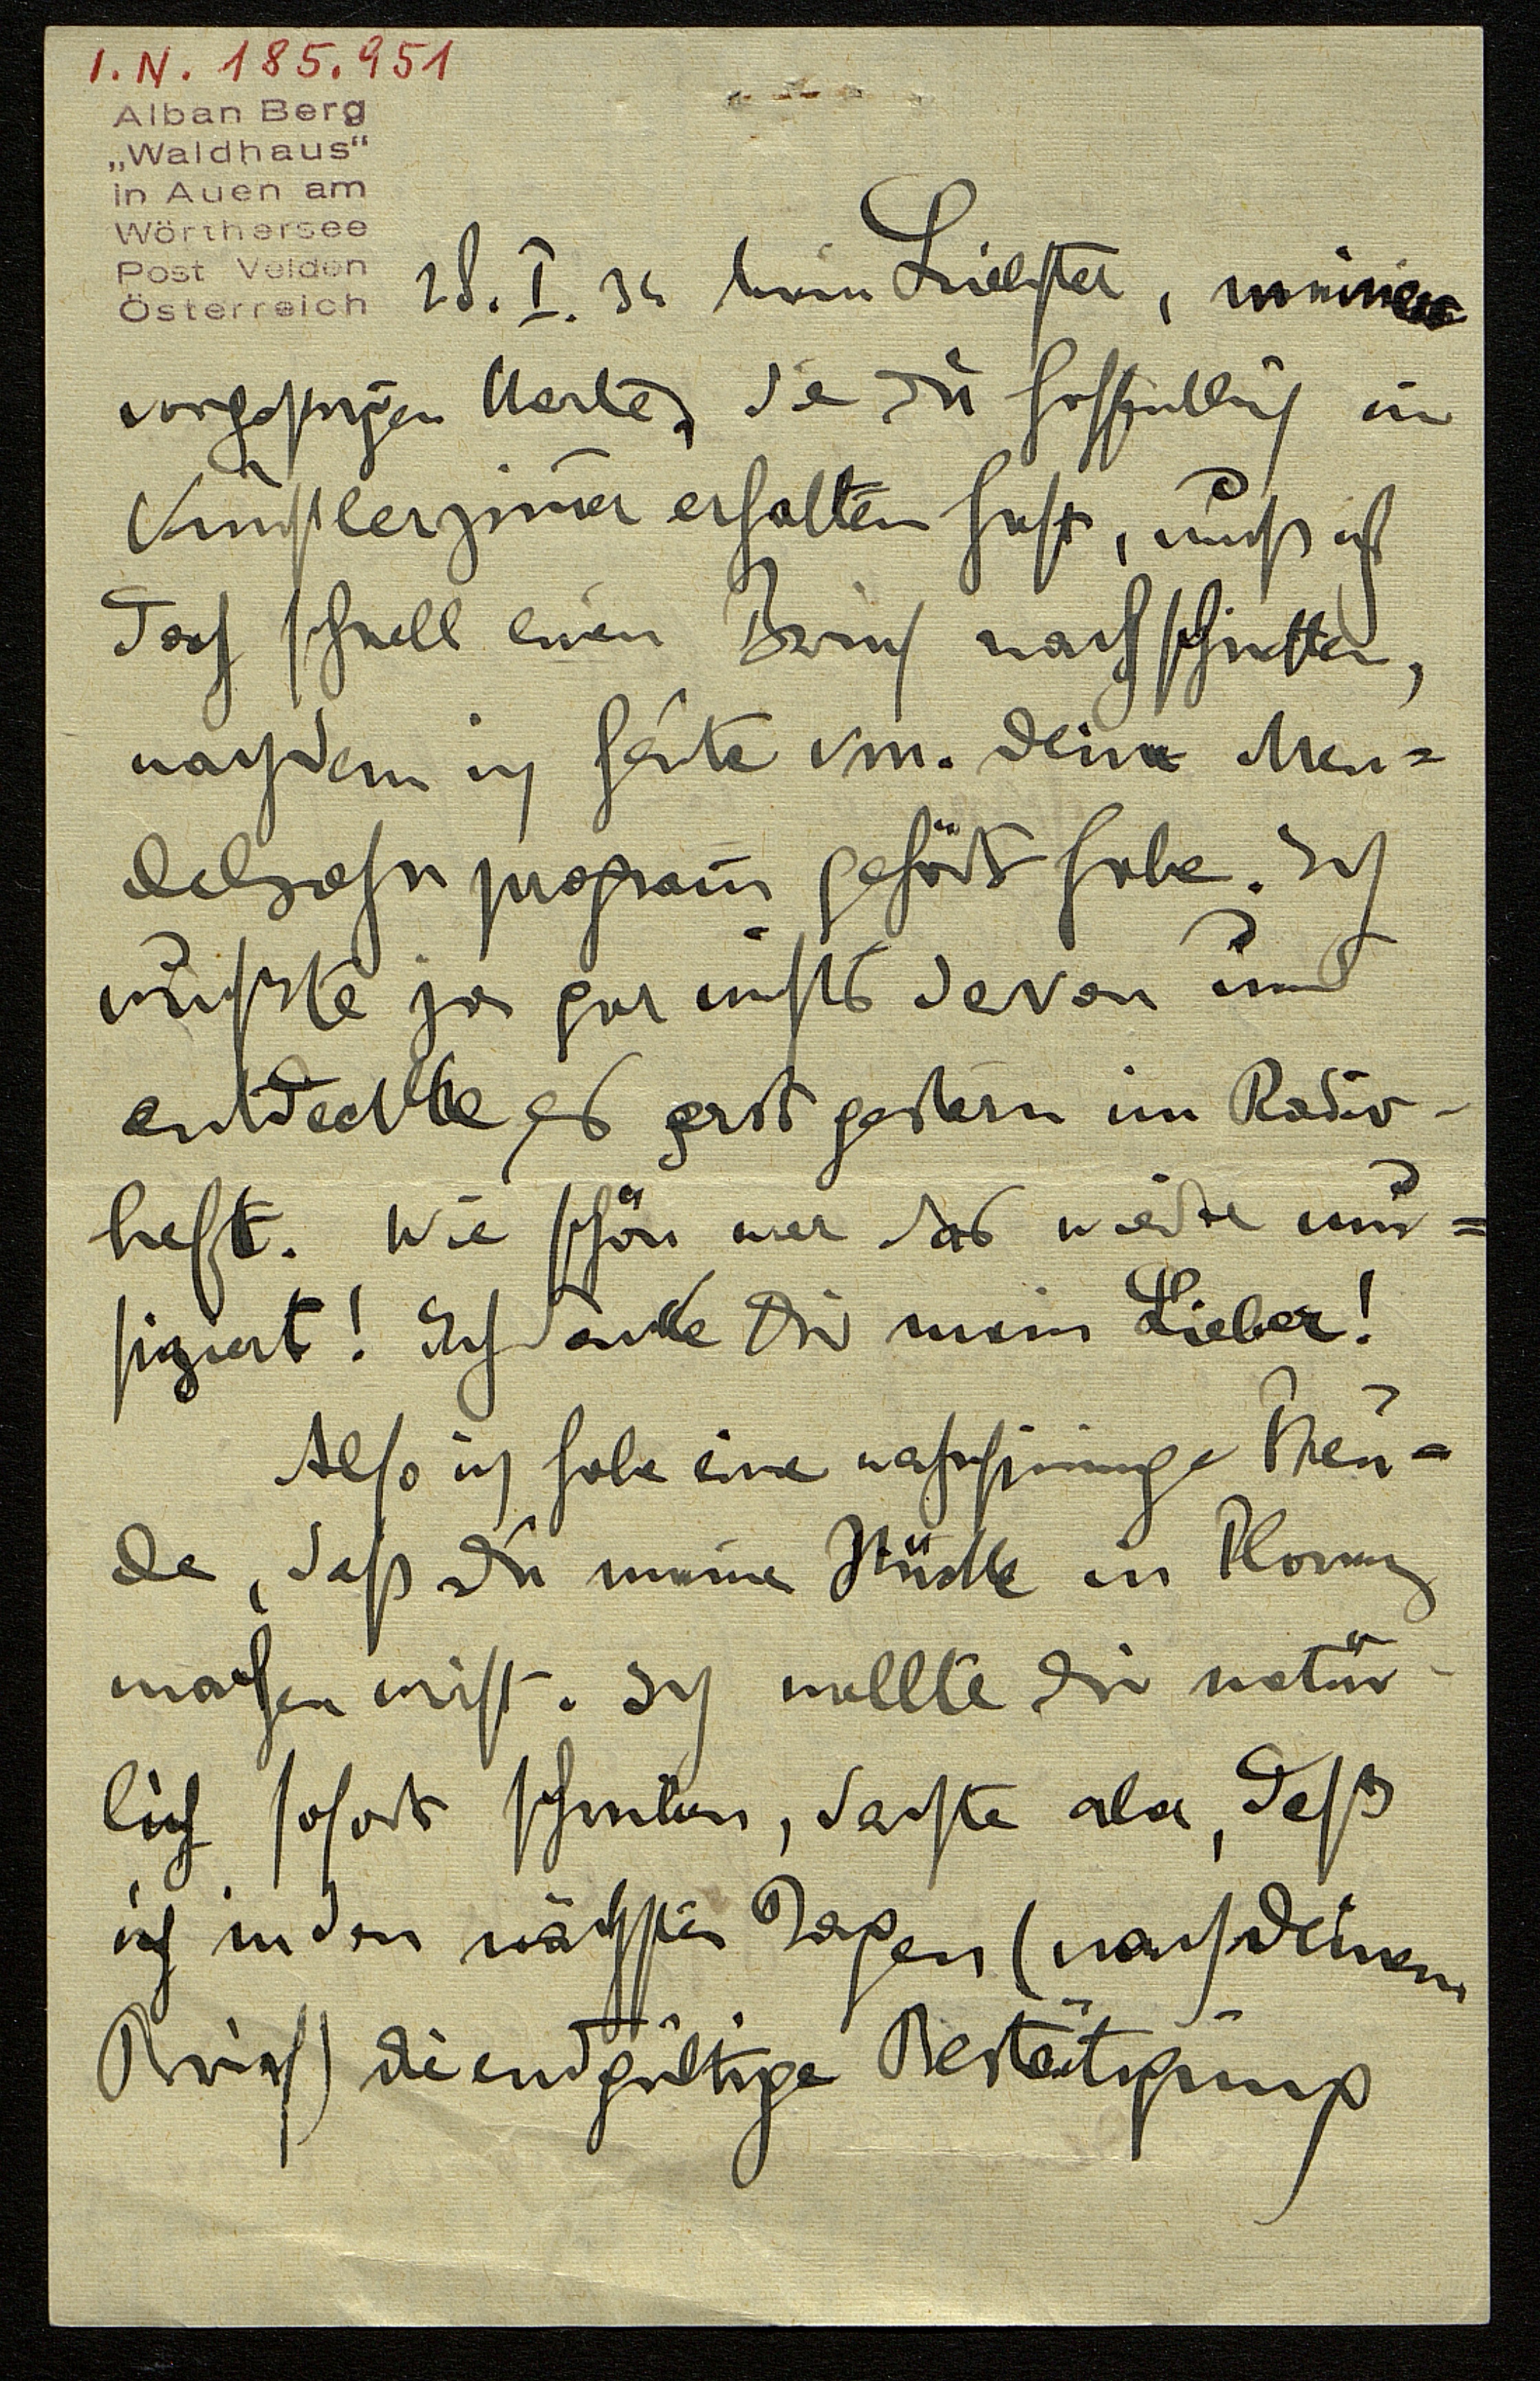 I. N. 185.951
Alban Berg
„Waldhaus“
in Auen am
Wörthersee
Post Velden
Österreich
28. I. 34 Mein Liebster, meiner
vorgestrigen Karte, die Du hoffentlich im
Künstlerzim̄er erhalten hast, muß ich
doch schnell einen Brief nachschicken,
nachdem ich heute vm. Dein Men=
delssohnprogram̄ gehört habe. Ich
wußte ja gar nichts davon und
entdeckte es erst gestern im Radio-
heft. Wie schön war das wieder mu=
siziert! Ich danke Dir mein Lieber!
Also ich habe eine wahnsinnige Freu=
de, daß Du meine Stücke in Florenz
machen wirst. Ich wollte Dir natür-
lich sofort schreiben, dachte aber, daß
ich in den nächsten Tagen (nach Deinem
Brief) die endgültige Bestätigung